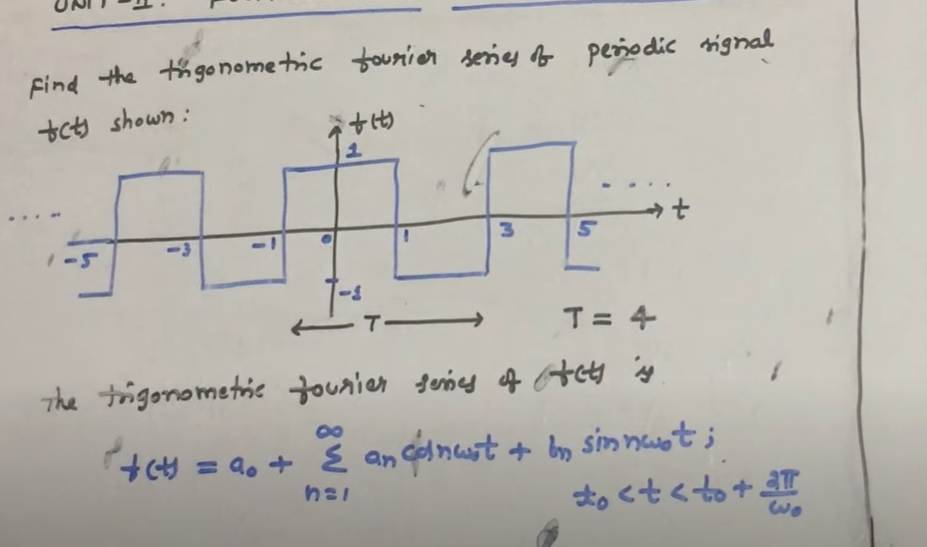 UNIT-II:
Find the trigonometric fourier series of periodic signal
f(t) shown:
f(t)
1
.... -5 -3 -1 0 1 3 5 .... t
-1
T T = 4
The trigonometric fourier series of f(t) is
f(t) = a₀ + ∞ Σ n=1 an cos nω₀t + bn sin nω₀t ;
t₀ < t < t₀ + 2π/ω₀